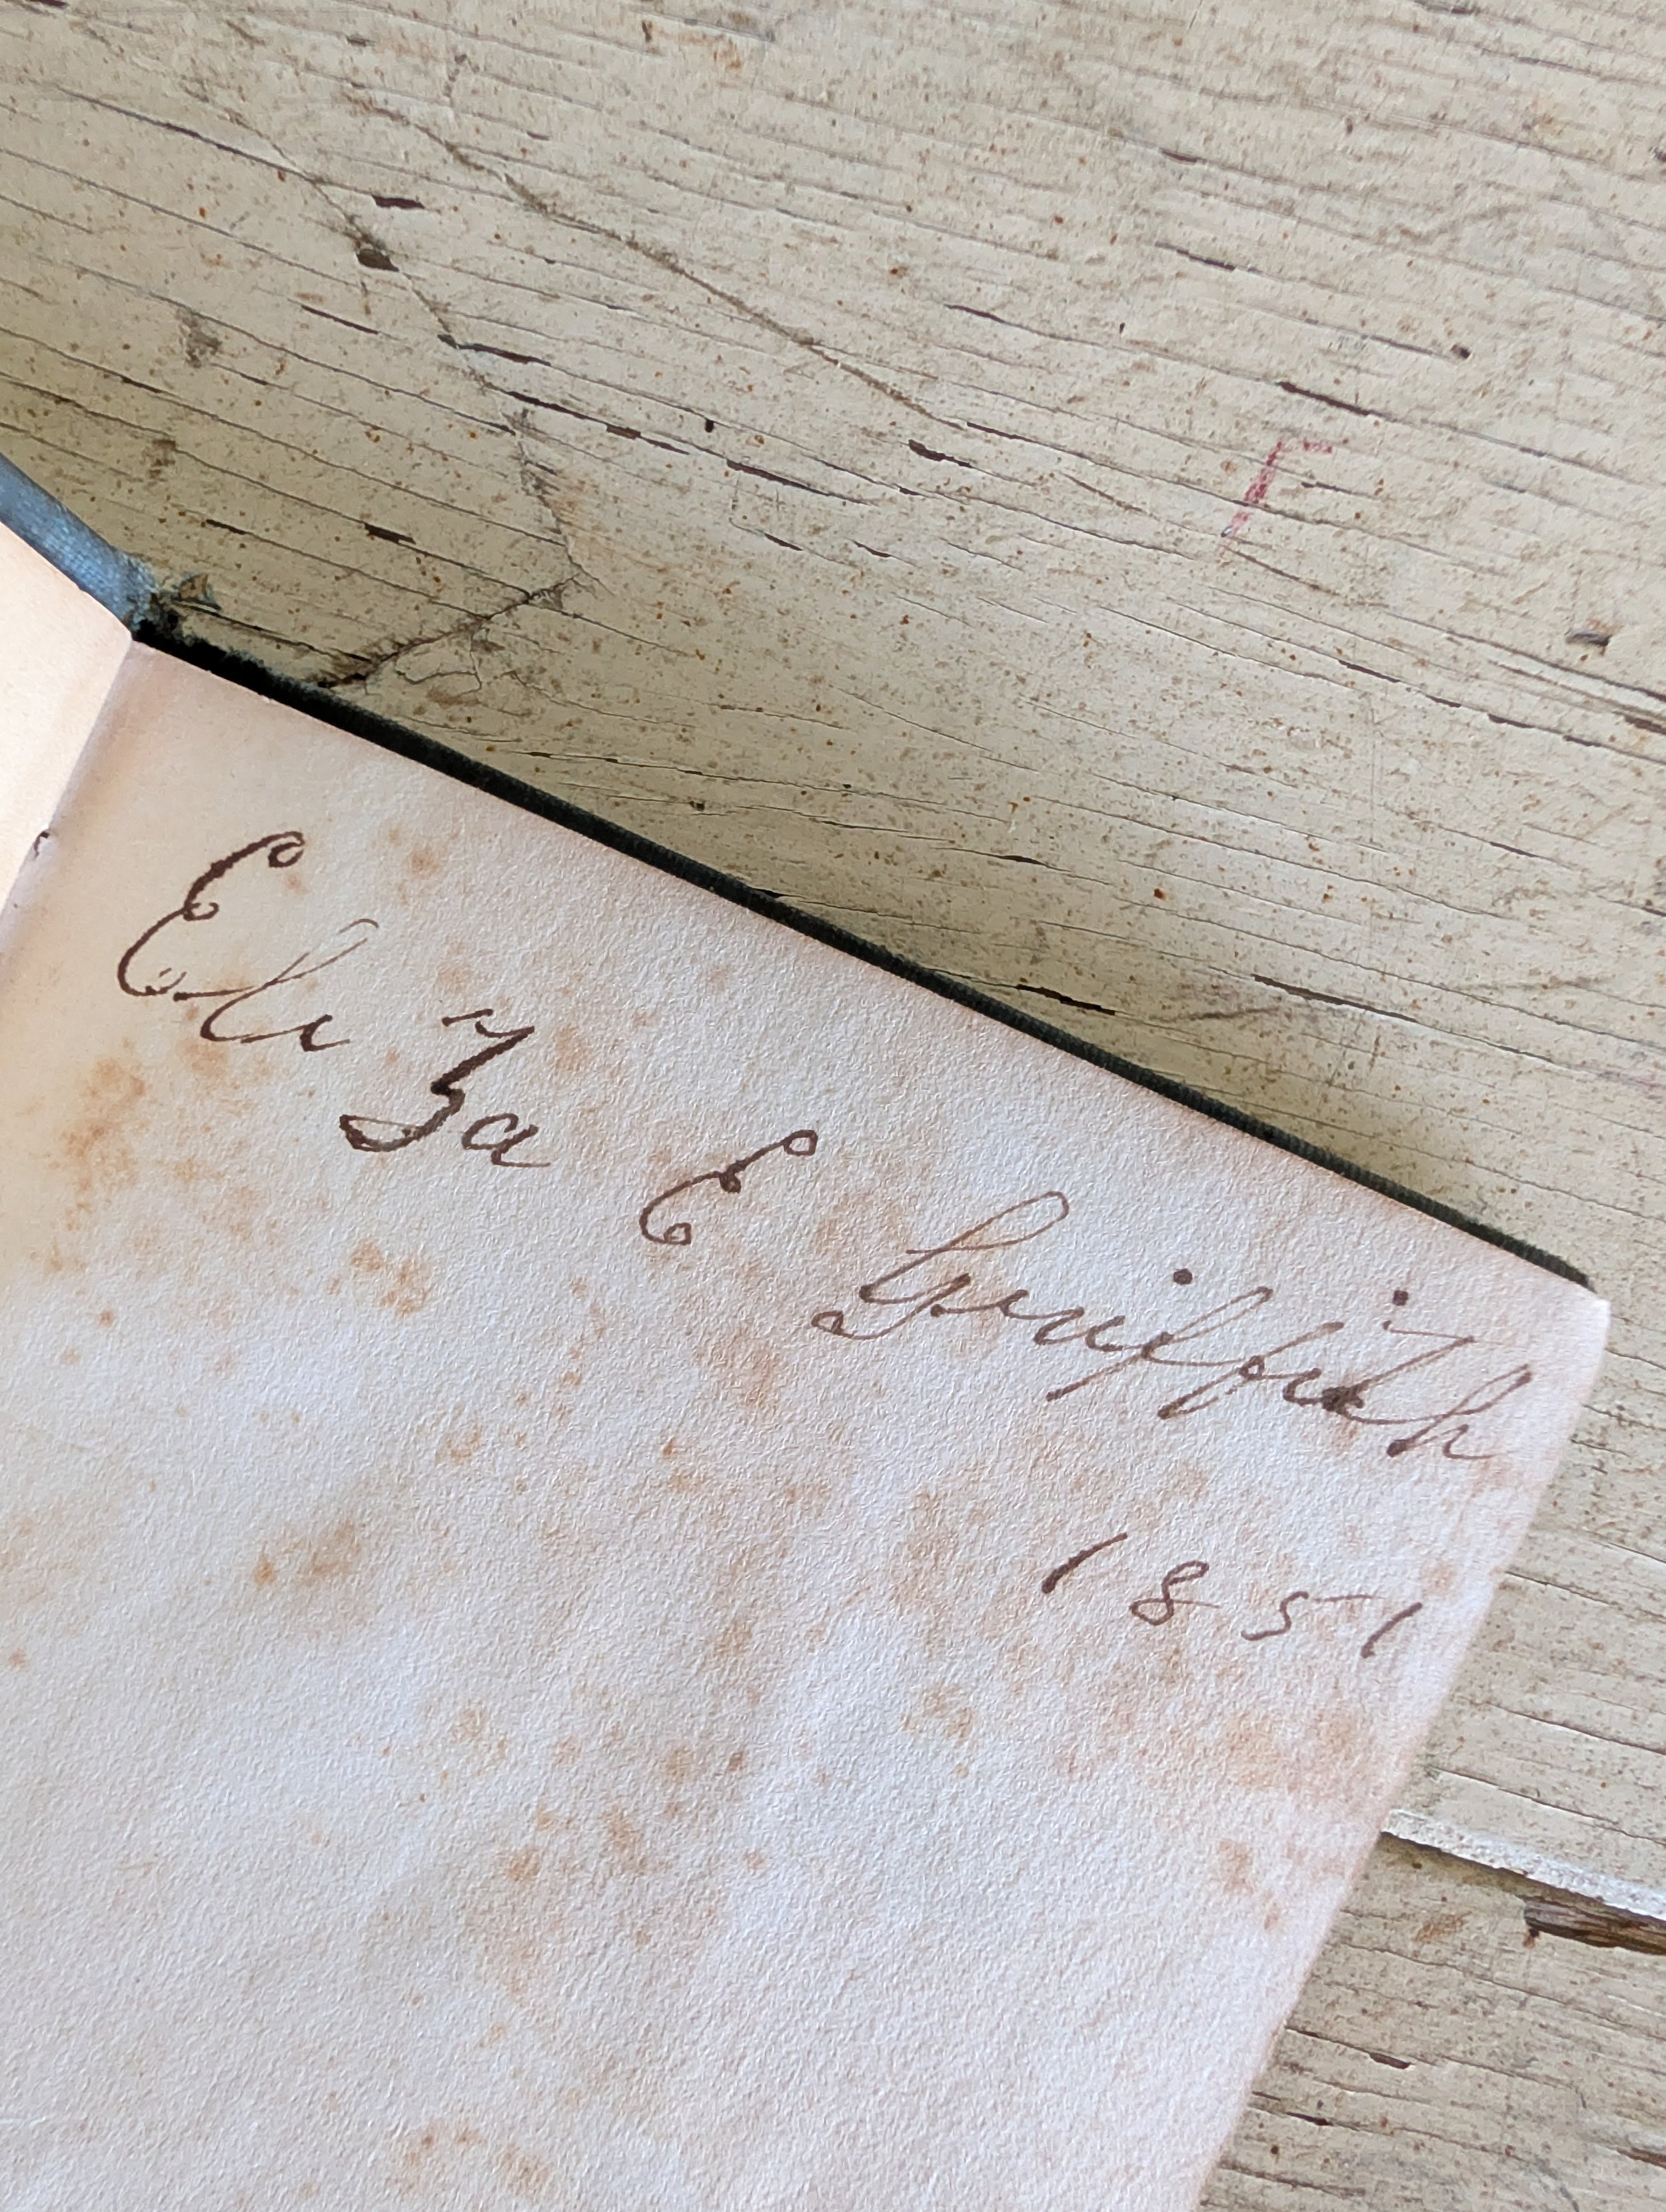 Eliza E Griffith
1851